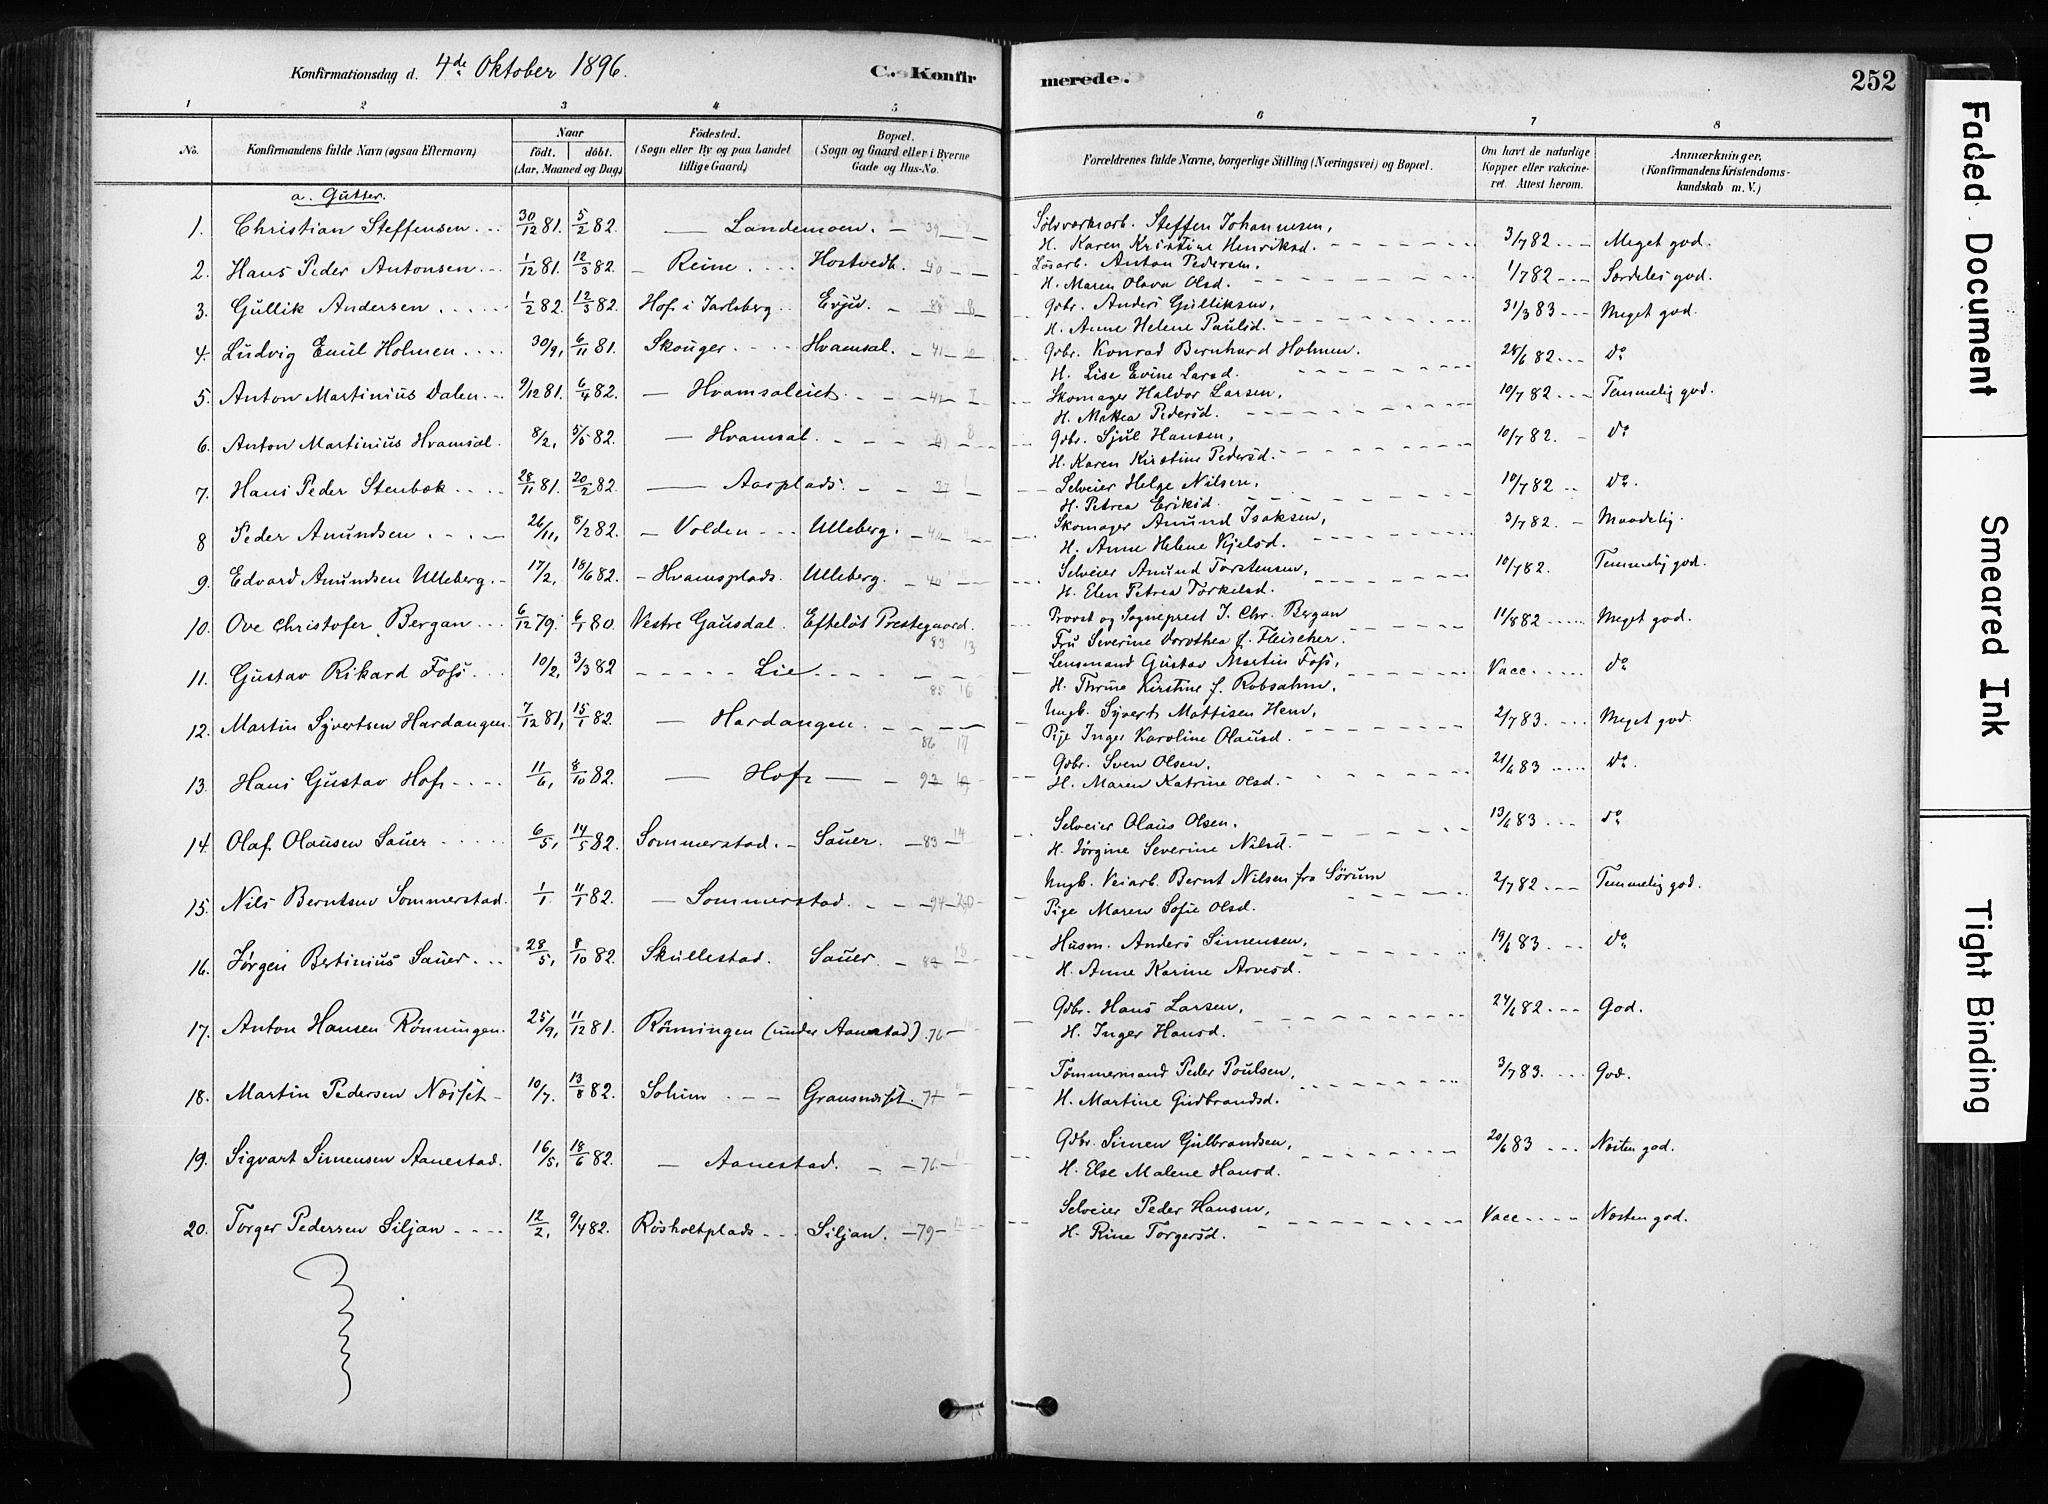 Konfirmationsdag d. 4de Oktober 1896. C. Konfirmerede. 252
1 2 3 4 5 6 7 8
No. Konfirmandens fulde Navn (ogsaa Efternavn) Naar født. døbt. (Aar, Maaned og Dag) Fødested. (Sogn eller By og paa Landet tillige Gaard) Bopæl. (Sogn og Gaard eller i Byerne Gade og Hus-No. Forældrenes fulde Navne, borgerlige Stilling (Næringsvei) og Bopæl. Om havt de naturlige Kopper eller vakcineret. Attest herom. Anmærkninger. (Konfirmandens Kristendomskundskab m. V.)
a. Gutter.
1. Christian Steffensen 30/12 81. 5/2 82. — Landemoen. 39 Sølvværksarb. Steffen Johannesen, 3/7 82 Meget god.
H. Karen Kristine Henriksd.
2. Hans Peder Antonsen 1/12 81. 12/3 82. — Reine Hostvedt. 40 Løsarb. Anton Pedersen, 1/7 82 Særdeles god.
H. Maren Olava Olsd.
3. Gullik Andersen 1/2 82. 12/3 82. Hof i Jarlsberg Evju Gdbr. Anders Gulliksen, 31/3 83 Meget god.
H. Anne Helene Paulsd.
4. Ludvig Emil Holmen 30/9, 6/11 81. Skouger Hvamsal 41 Gdbr. Konrad Bernhard Holmen. 28/6 82 do
H. Lise Evine Larsd.
5. Anton Martinius Dalen 9/12 81. 6/4 82. — Hvamsaleiet Skomager Haldor Larsen, 10/7 82 Temmelig god.
H. Mathea Pedersd.
6. Anton Martinius Hvamsal 8/2, 5/5 82. — Hvamsal. Gdbr. Sjul Hansen, 10/7 82. do
H. Karen Kirstine Pedersd.
7. Hans Peder Stenbæk 28/11 81. 20/2 82. — Aasplads. Selveier Helge Nilsen, 10/7 82 do.
H. Petrea Eriksd.
8 Peder Amundsen 26/11, 5/2 82. — Volden Ulleberg. Skomager Amund Isaksen, 3/7 82. Maadelig.
H. Anne Helene Kjelsd.
9. Edvard Amundsen Ulleberg. 17/2, 18/6 82. — Hvamsplads. Ulleberg. 40 Selveier Amund Torstensen, 10/7 82. Temmelig god.
H. Elen Petrea Torkelsd.
10. Ove Christofer Bergan 6/12 79. 6/1 80. Vestre Gausdal. Efteløt Prestegaard. 83 13 Provst og Sogneprest J. Chr. Bergan 11/8 82 Meget god.
Fru Severine Dorothea f. Fleischer.
11. Gustav Rikard Foss 10/2, 3/3 82 Lie 85 16 Lensmand Gustav Martin Foss, Vacc. do
H. Thrine Kirstine f. Robsahm.
12. Martin Syvertsen Hardangen. 7/12 81, 15/1 82. — Hardangen. 86 17 Ungk. Syvert Mattisen Hem, 2/7 83. Meget god.
Pige Inger Karoline Olausd.
13. Hans Gustav Hof 11/6, 8/10 82. — Hof 92 19 Gdbr. Sven Olsen, 21/6 83 do.
H. Maren Katrine Olsd.
14. Olaf Olausen Sauer 6/5, 14/5 82. Sommerstad. Sauer. 83 14 Selveier Olaus Olsen. 13/6 83 do
H. Jørgine Severine Nilsd.
15. Nils Berntsen Sommerstad. 1/1 11/1 82. — Sommerstad. 94 20 Ungk. Veiarb. Bernt Nilsen fra Sørum 2/7 82 Temmelig god.
Pige Maren Sofie Olsd.
16. Jørgen Bertinius Sauer 28/5, 8/10 82. Skullestad. Sauer 83 Husm. Anders Simensen, 19/6 83 do
H. Anne Karine Arvesd.
17. Anton Hansen Rønningen. 25/9, 11/12 81. Rønningen (under Aanestad). 76 Gdbr. Hans Larsen, 24/6 82 God.
H. Inger Hansd.
18. Martin Pedersen Næsset 10/7. 13/8 82. Solum Gransnæsset. Tømmermand Peder Poulsen, 3/7 83. God.
H. Martine Gudbrandsd.
19. Sigvart Simensen Aanestad. 16/5, 18/6 82. — Aanestad. 76 Gdbr. Simen Gulbrandsen, 20/6 83 Næsten god.
H. Else Malene Hansd.
20. Torger Pedersen Siljan 12/2, 9/4 82. Røsholtplads Siljan. 79 Selveier Peder Hansen, Vacc Næsten god.
H. Rine Torgersd.
Faded Document
Smeared Ink
Tight Binding